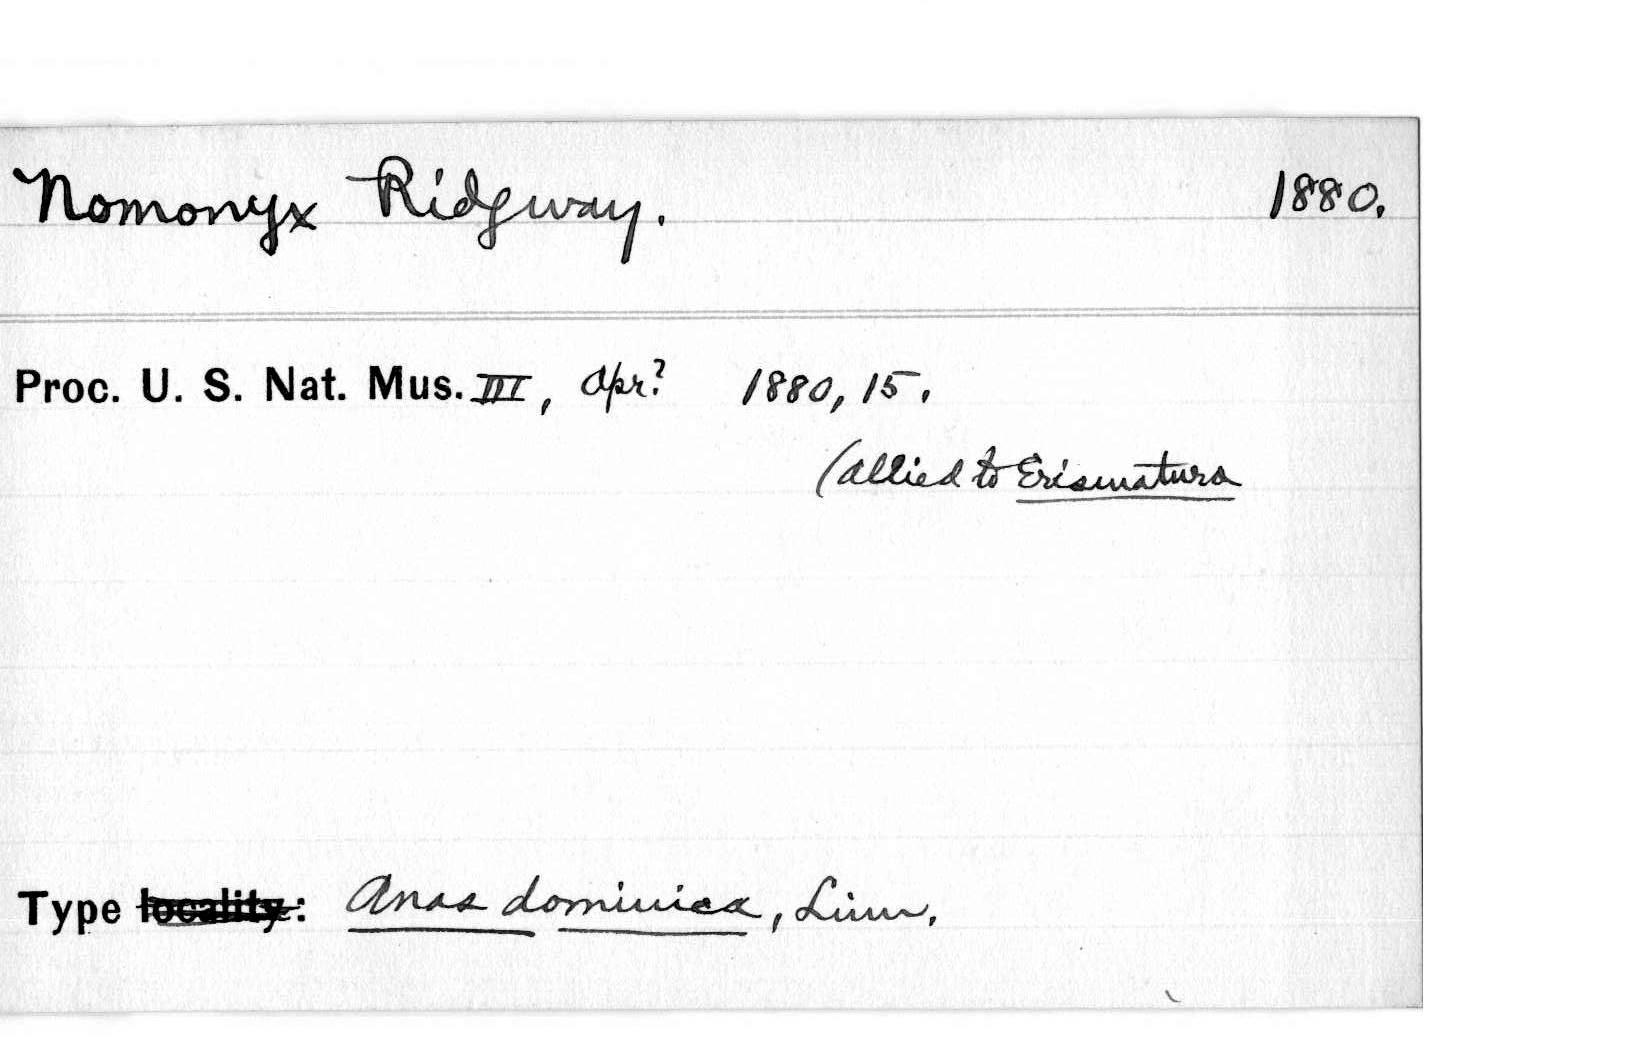 Nomonyx Ridgway. 1880.
Proc. U. S. Nat. Mus. III, Apr? 1880, 15.
(allied to Erismatura
Type locality: Anas dominica, Linn.